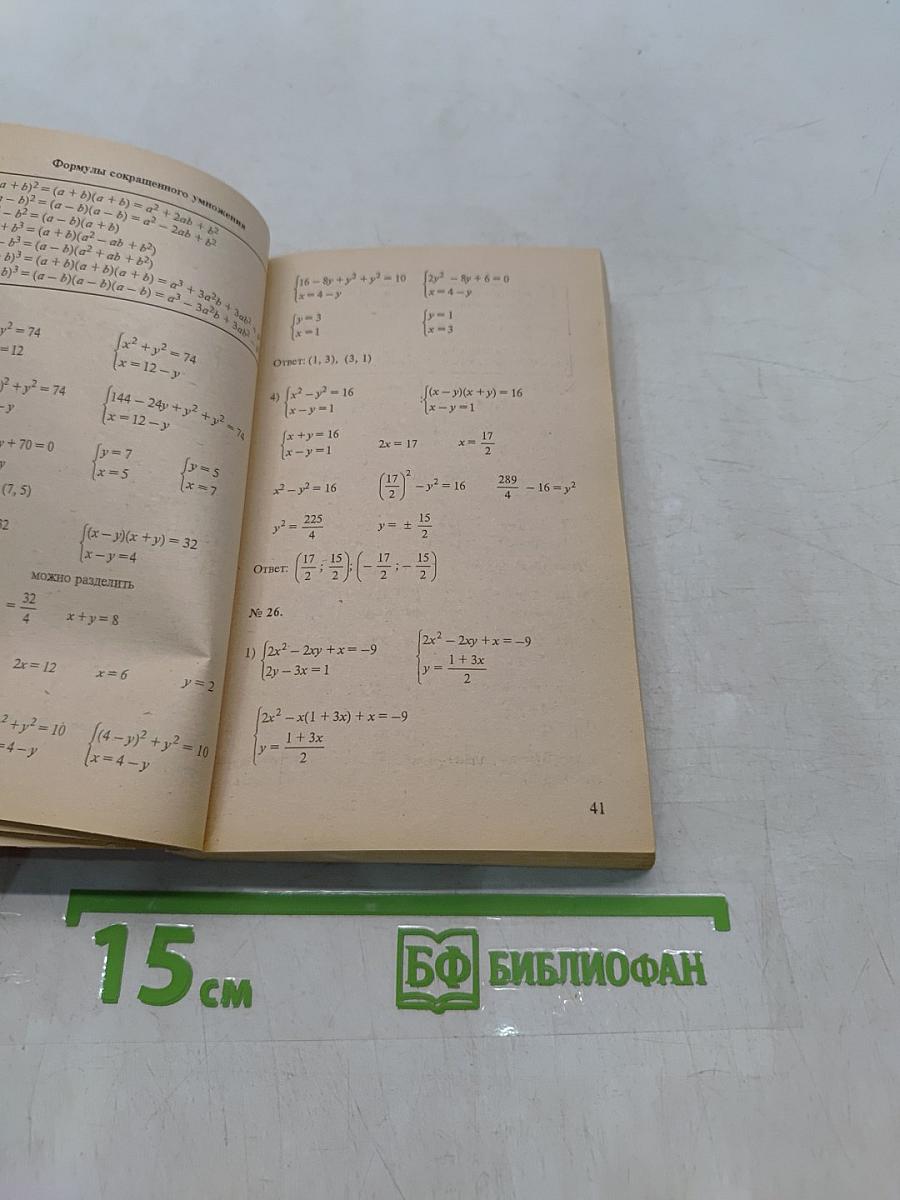 Формулы сокращенного умножения
a + b)² = (a + b)(a + b) = a² + 2ab + b²
– b)² = (a – b)(a – b) = a² – 2ab + b²
– b² = (a – b)(a + b)
+ b³ = (a + b)(a² – ab + b²)
– b³ = (a – b)(a² + ab + b²)
b)³ = (a + b)(a + b)(a + b) = a³ + 3a²b + 3ab²
b)³ = (a – b)(a – b)(a – b) = a³ – 3a²b + 3ab²
y² = 74 x² + y² = 74
= 12 x = 12 – y
)² + y² = 74 144 – 24y + y² + y² = 74
– y x = 12 – y
y + 70 = 0 y = 7 y = 5
y x = 5 x = 7
(7, 5)
32 (x – y)(x + y) = 32
x – y = 4
можно разделить
= 32/4 x + y = 8
2x = 12 x = 6 y = 2
² + y² = 10 (4 – y)² + y² = 10
= 4 – y x = 4 – y
16 – 8y + y² + y² = 10 2y² – 8y + 6 = 0
x = 4 – y x = 4 – y
y = 3 y = 1
x = 1 x = 3
Ответ: (1, 3), (3, 1)
4) x² – y² = 16 (x – y)(x + y) = 16
x – y = 1 x – y = 1
x + y = 16 2x = 17 x = 17/2
x – y = 1
x² – y² = 16 (17/2)² – y² = 16 289/4 – 16 = y²
y² = 225/4 y = ± 15/2
Ответ: (17/2 ; 15/2); (– 17/2 ; – 15/2)
№ 26.
1) 2x² – 2xy + x = –9 2x² – 2xy + x = –9
2y – 3x = 1 y = (1 + 3x)/2
2x² – x(1 + 3x) + x = –9
y = (1 + 3x)/2
41
15 см
БФ БИБЛИОФАН